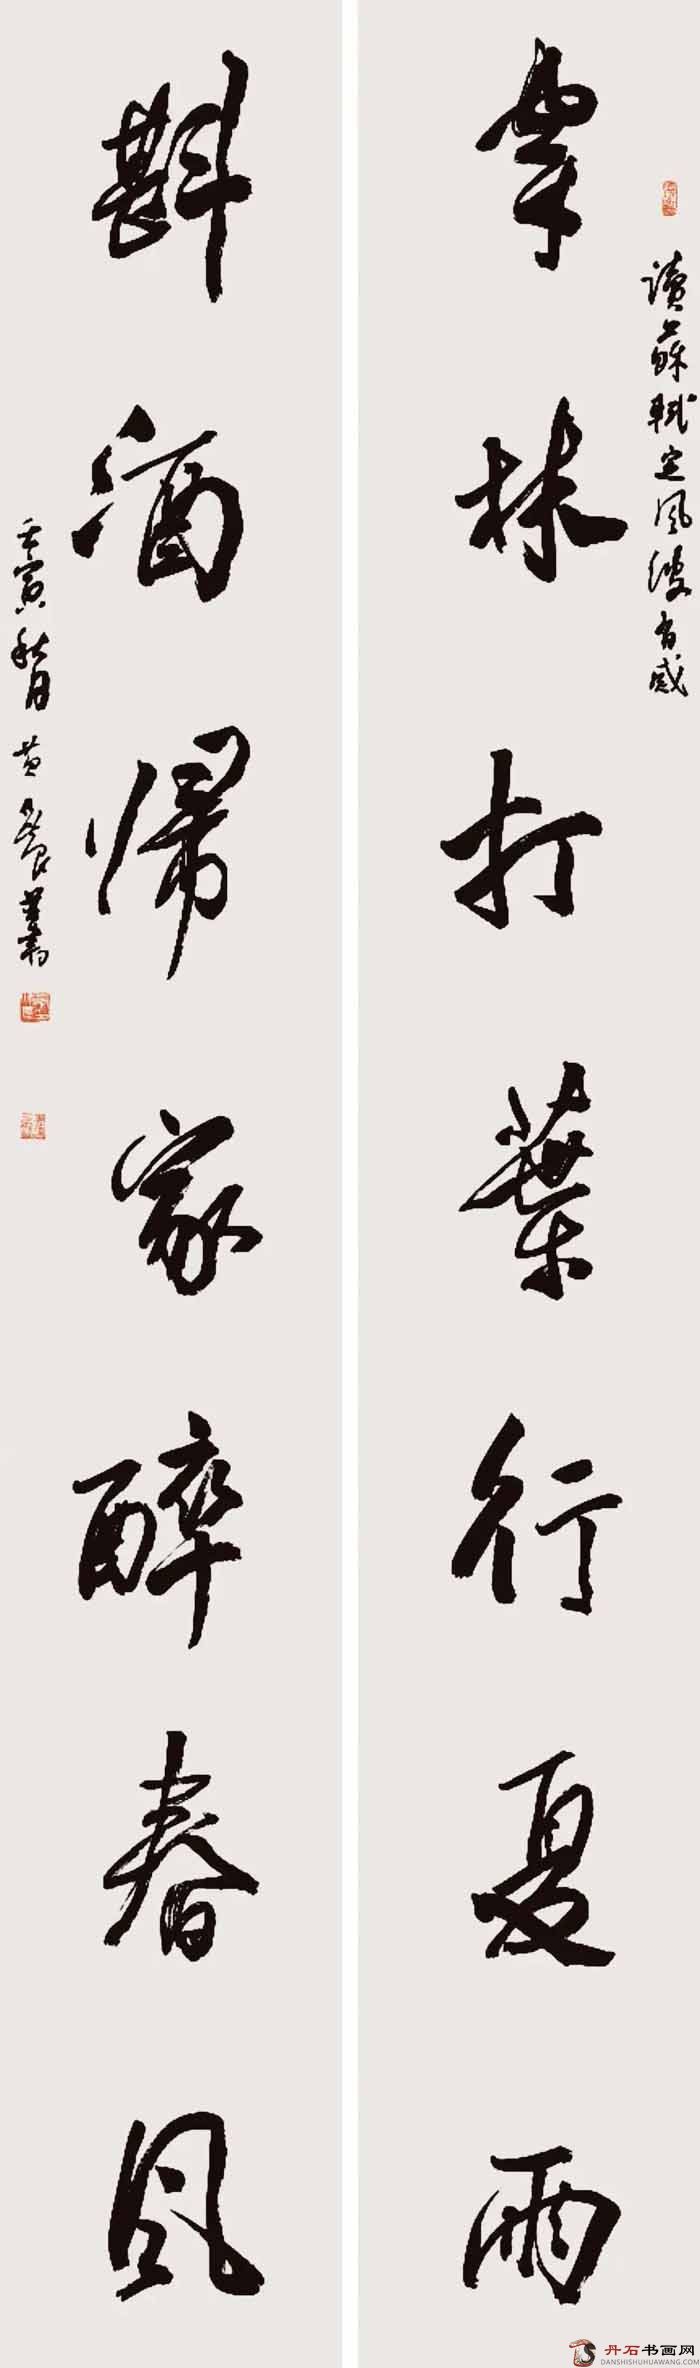 讀蘇軾定風波有感
穿林打葉行夏雨
斟酒歸家醉春風
壬寅秋月黄
丹石书画网
DANSHISHUHUAWANG.COM